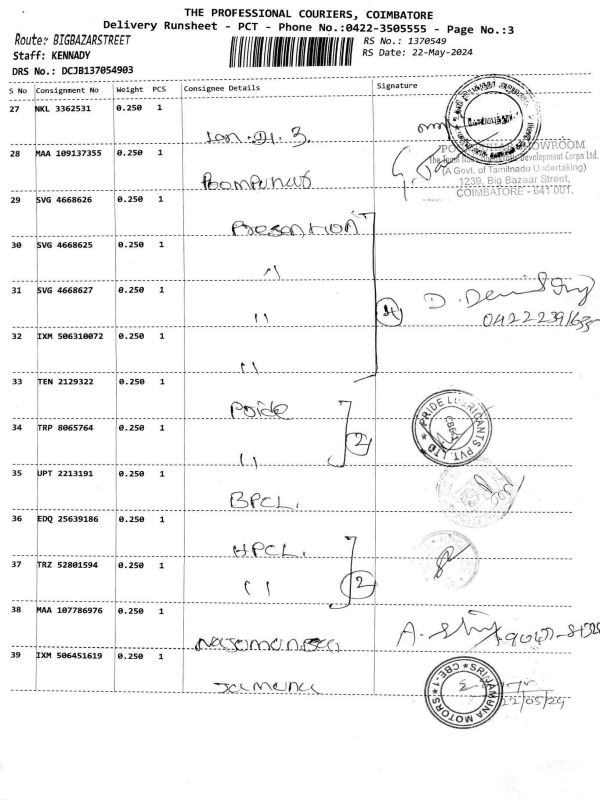 THE PROFESSIONAL COURIERS, COIMBATORE
Delivery Runsheet - PCT - Phone No.:0422-3505555 - Page No.:3
Route: BIGBAZARSTREET
RS No.: 1370549
Staff: KENNADY
RS Date: 22-May-2024
DRS No.: DCJB137054903
S No Consignment No Weight PCS Consignee Details Signature
27 NKL 3362531 0.250 1
28 MAA 109137355 0.250 1
Poompuhar
SHOWROOM
Development Corpn Ltd.
(A Govt. of Tamilnadu Undertaking)
1239, Big Bazaar Street,
COIMBATORE - 641 001.
29 SVG 4668626 0.250 1
30 SVG 4668625 0.250 1
"
31 SVG 4668627 0.250 1
"
4
32 IXM 506310072 0.250 1
"
33 TEN 2129322 0.250 1
Pride
34 TRP 8065764 0.250 1
"
2
PRIDE LUBRICANTS PVT. LTD
35 UPT 2213191 0.250 1
BPCL.
36 EDQ 25639186 0.250 1
HPCL.
37 TRZ 52801594 0.250 1
"
2
38 MAA 107786976 0.250 1
39 IXM 506451619 0.250 1
Jamuna
SRI JAMUNA MOTORS CBE-1
22/05/24